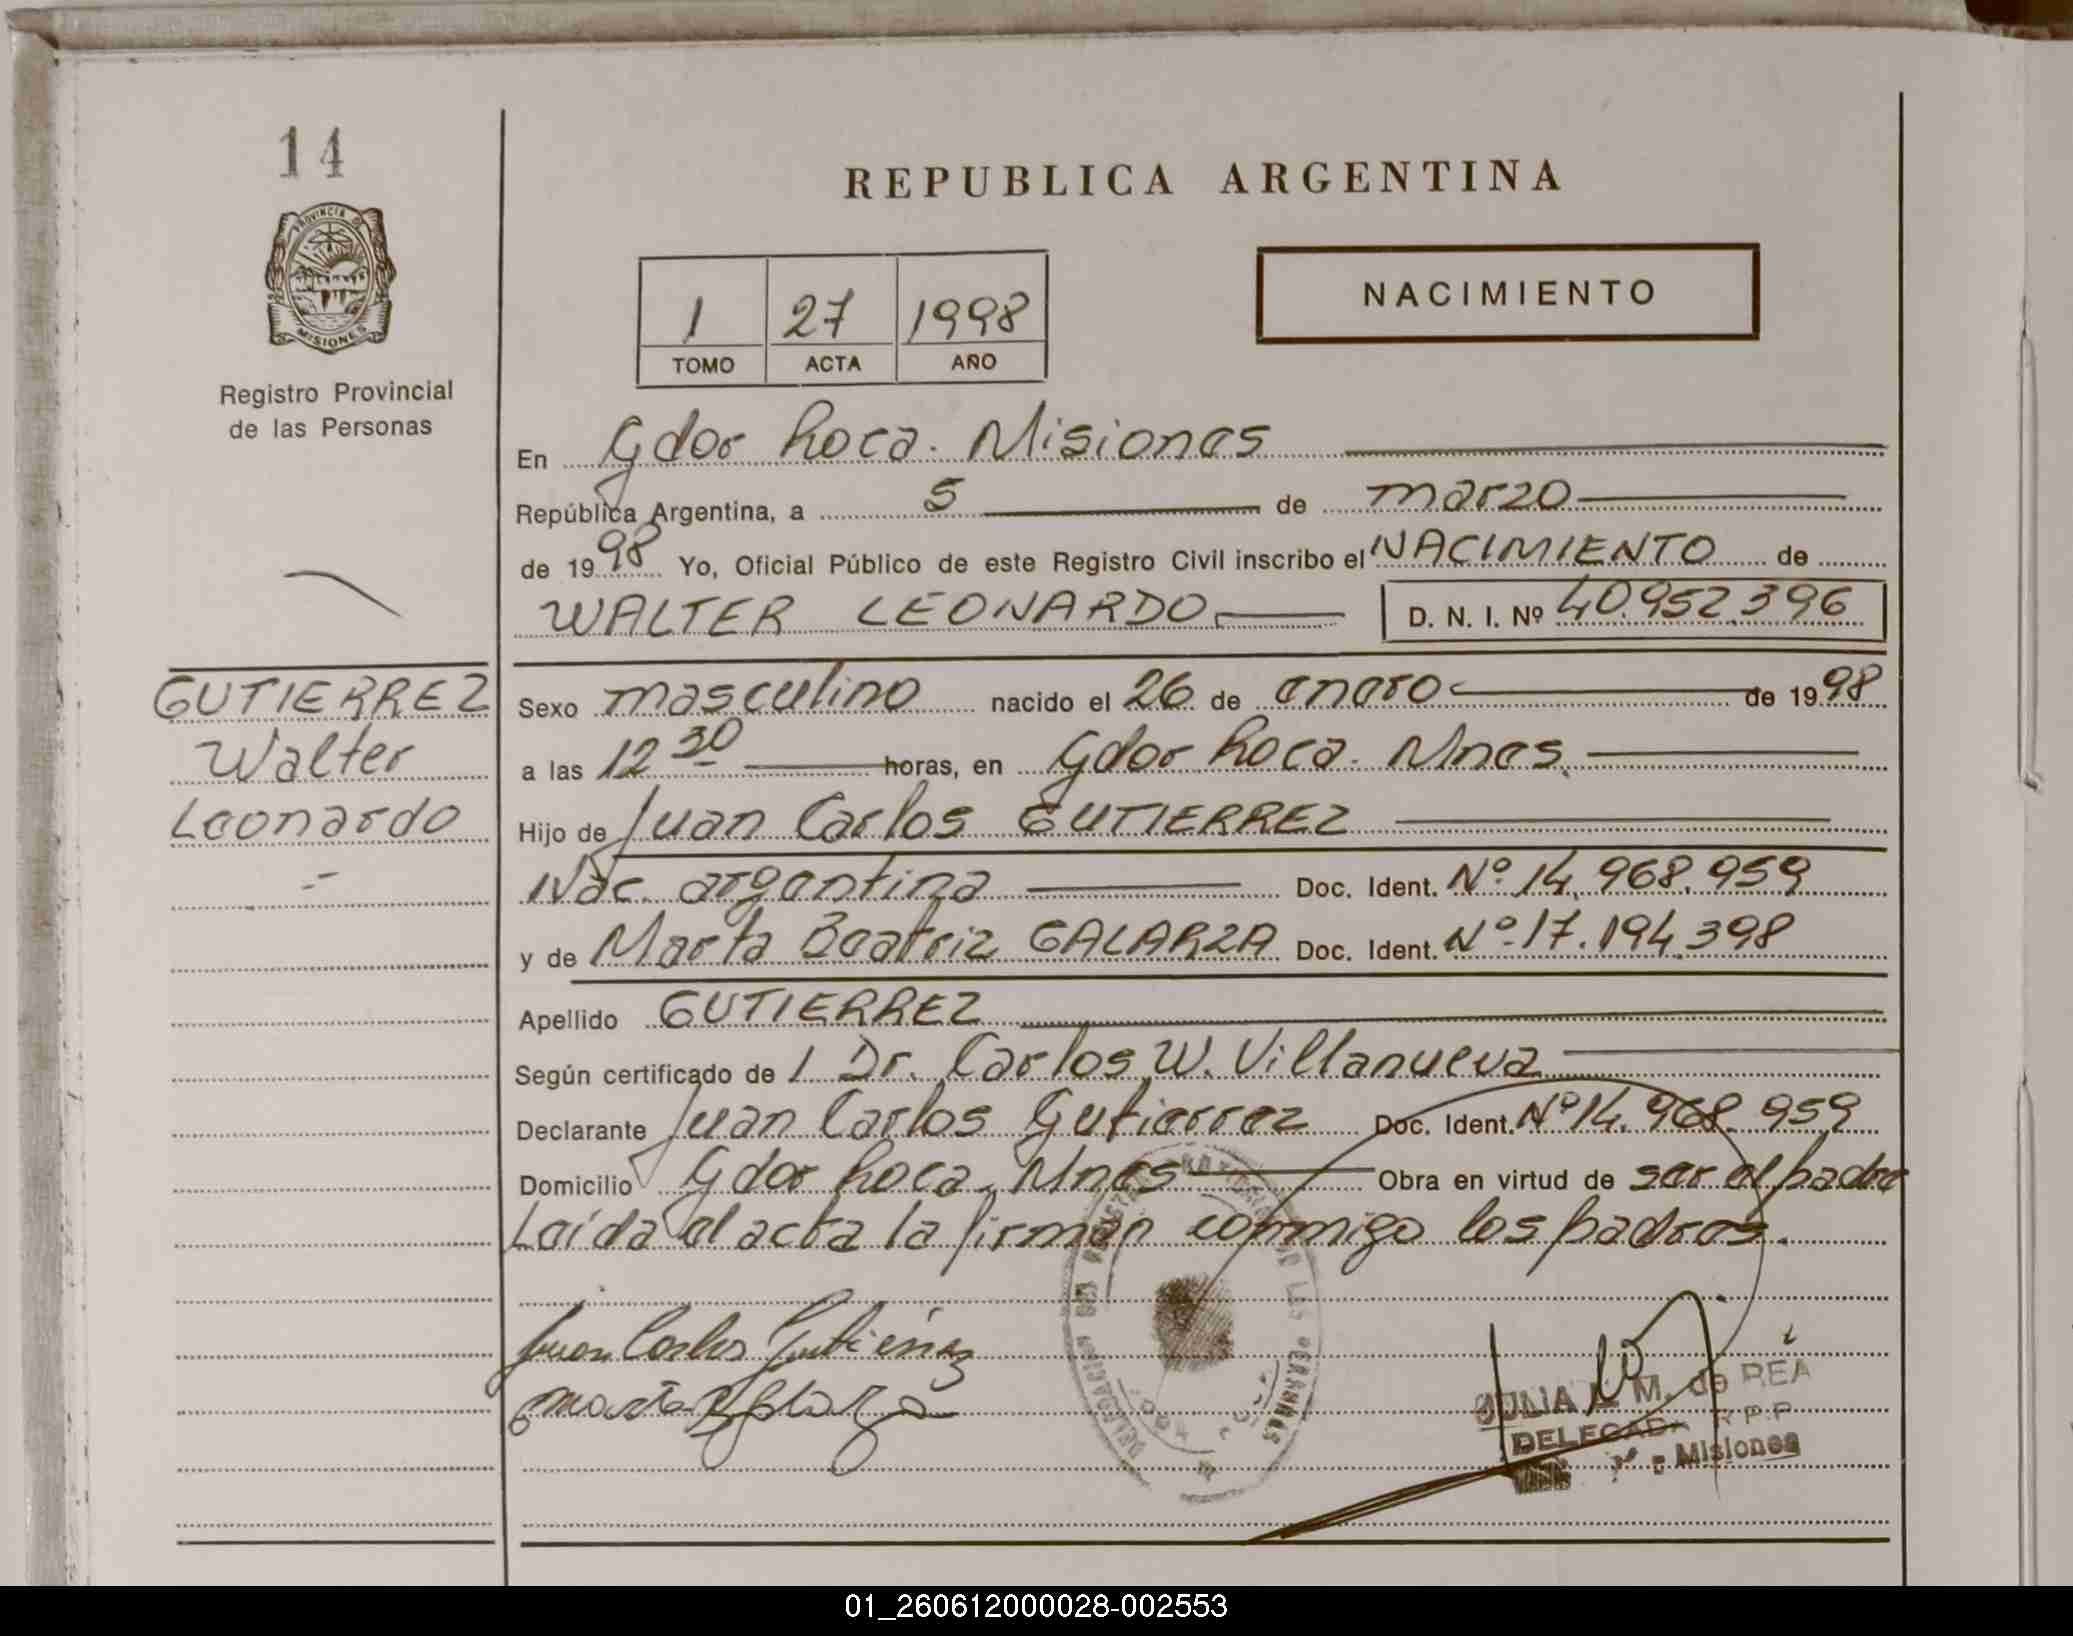 14
REPUBLICA ARGENTINA
PROVINCIA D
MISIONES
Registro Provincial
de las Personas
NACIMIENTO
1 27 1998
TOMO ACTA AÑO
En Gdor Roca. Misiones
República Argentina, a 5 de marzo
de 1998 Yo, Oficial Público de este Registro Civil inscribo el NACIMIENTO de
WALTER LEONARDO D. N. I. Nº 40.952.396
GUTIERREZ
Walter
Leonardo
Sexo masculino nacido el 26 de enero de 1998
a las 12 30 horas, en Gdor Roca. Mnes.
Hijo de Juan Carlos GUTIERREZ
Nac. argentina Doc. Ident. Nº 14.968.959
y de Marta Beatriz GALARZA Doc. Ident. Nº 17.194.398
Apellido GUTIERREZ
Según certificado de l Dr. Carlos W. Villanueva
Declarante Juan Carlos Gutierrez Doc. Ident. Nº 14.968.959
Domicilio Gdor Roca. Mnes Obra en virtud de ser el padre
Leída el acta la firman conmigo los padres.
Juan Carlos Gutiérrez
DE LAS PERSONAS
DELEGACION
JULIA L. M. de REA
DELEGADA R.P.P
Misiones
01_260612000028-002553